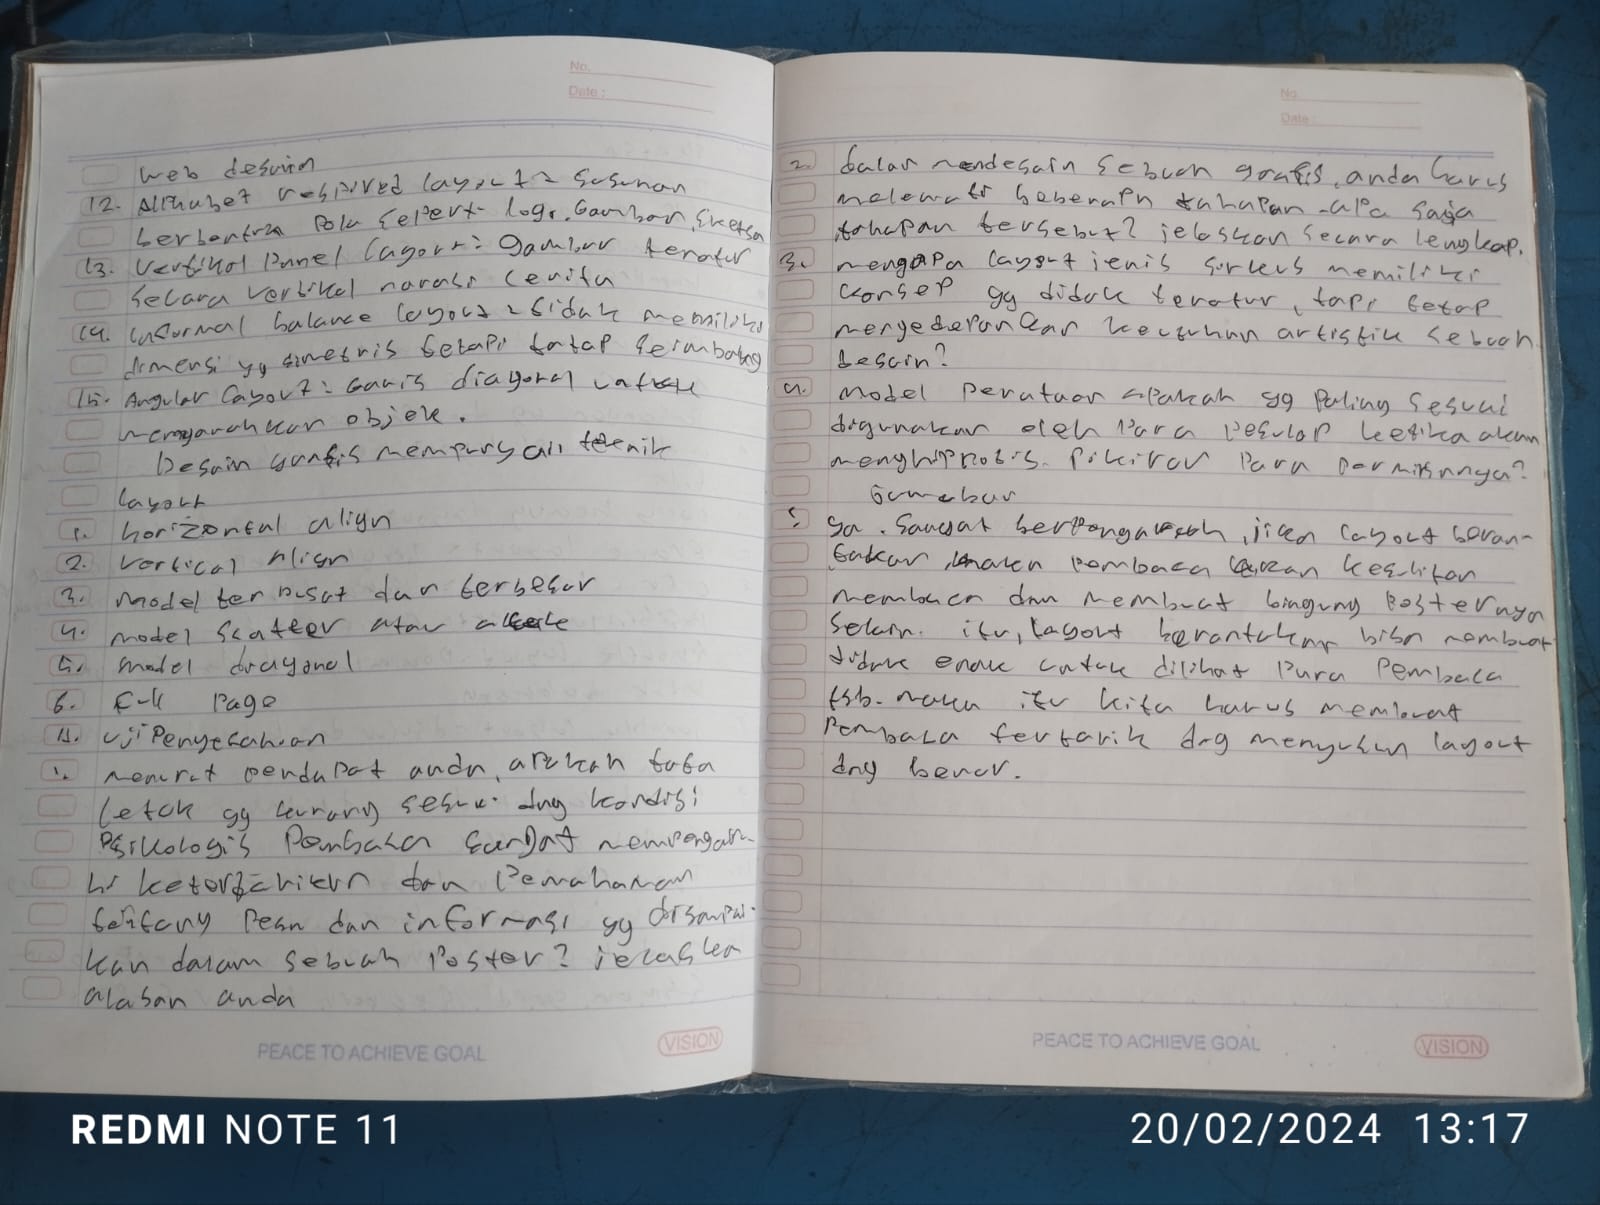 No.
Date :
web desain
12. Alphabet respired layout = susunan
berbentuk pola seperti logo, Gambar, sketsa
13. vertikal panel layout = gambar teratur
secara vertikal narasi cerita
14. informal balance layout = tidak memiliki
dimensi yg simetris tetapi tatap seimbang
15. Angular layout = Garis diagonal untuk
mengarahkan objek.
Desain grafis mempunyai teknik
layout
1. horizontal align
2. vertical Align
3. model terpusat dan terbesar
4. model Scatter atau
5. model diagonal
6. Full Page
A. uji Pengetahuan
1. menurut pendapat anda, apakah tata
letak yg kurang sesuai dng kondisi
Psikologis Pembaca sangat mempengaru-
hi ketertarikan dan Pemahaman
tentang Pesan dan informasi yg disampai-
kan dalam sebuah Poster? jelaskan
alasan anda
PEACE TO ACHIEVE GOAL
VISION
No.
Date :
2. Dalam mendesain sebuah grafis, anda harus
melewati beberapa tahapan. apa saja
tahapan tersebut? jelaskan secara lengkap.
3. mengapa layout jenis sirkus memiliki
konsep yg tidak teratur, tapi tetap
mengedepankan keutuhan artistik sebuah
Desain?
4. Model Penataan apakah yg paling sesuai
digunakan oleh para pesulap ketika akan
menghipnotis pikiran para permirsanya?
Jawaban
1. ya. Sangat berpengaruh, jika layout beran-
takan, maka pembaca akan kesulitan
membaca dan membuat bingung posternya
Selain itu, layout berantakan bisa membuat
tidak enak untuk dilihat para pembaca
tsb. maka itu kita harus membuat
Pembaca tertarik dng menyusun layout
dng benar.
PEACE TO ACHIEVE GOAL
VISION
REDMI NOTE 11
20/02/2024 13:17